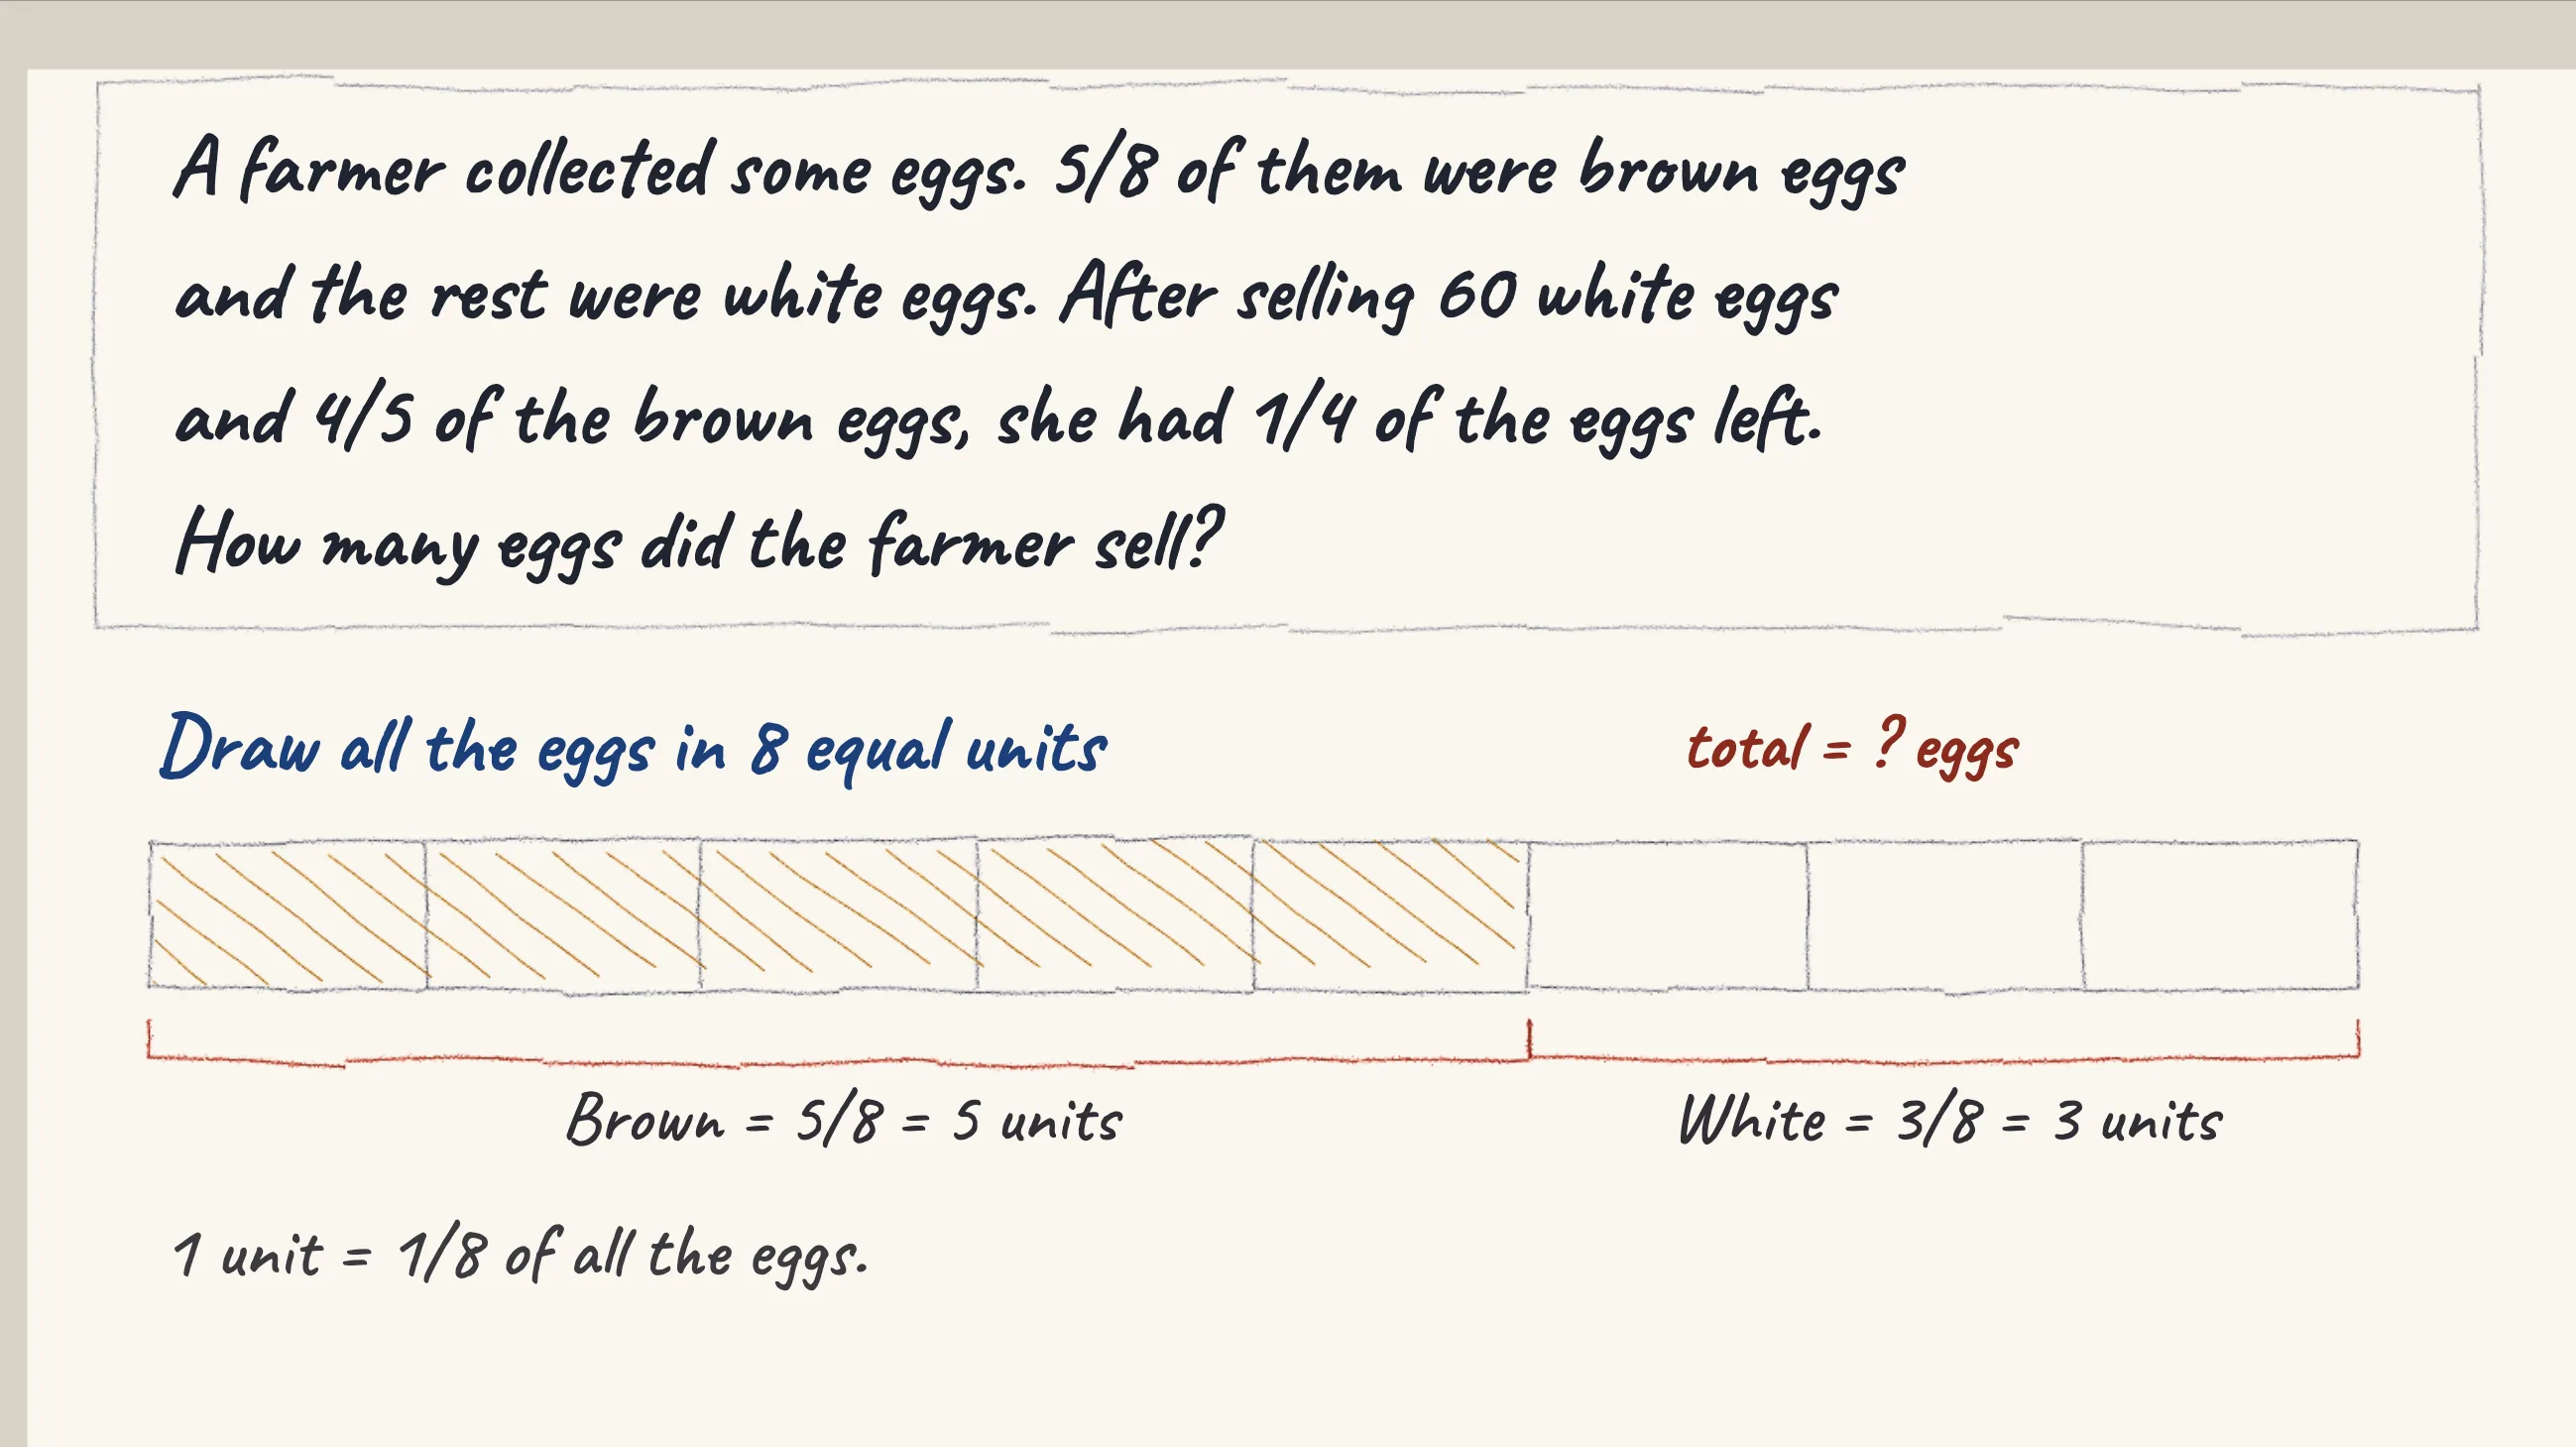 A farmer collected some eggs. 5/8 of them were brown eggs
and the rest were white eggs. After selling 60 white eggs
and 4/5 of the brown eggs, she had 1/4 of the eggs left.
How many eggs did the farmer sell?
Draw all the eggs in 8 equal units
total = ? eggs
Brown = 5/8 = 5 units
White = 3/8 = 3 units
1 unit = 1/8 of all the eggs.